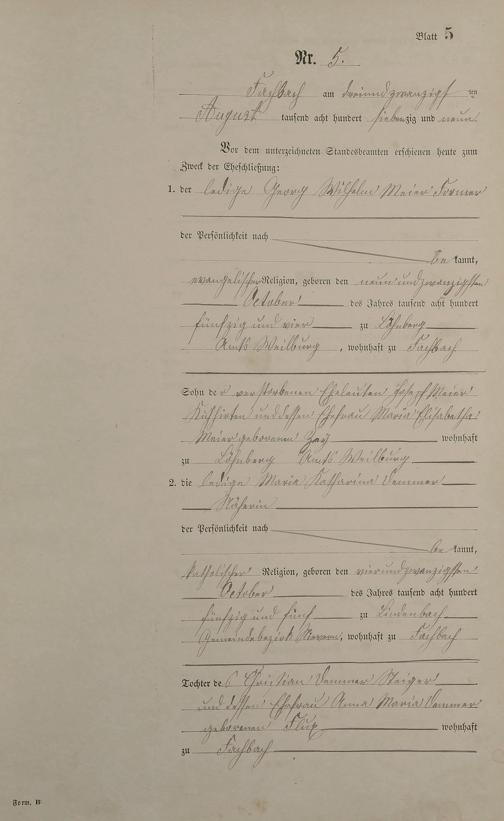 Blatt 5
Nr. 5.
Fachbach am dreiundzwanzigsten
August tausend acht hundert siebenzig und neun
Vor dem unterzeichneten Standesbeamten erschienen heute zum
Zweck der Eheschließung:
1. der ledige Georg Wilhelm Meier Former
der Persönlichkeit nach
be kannt,
evangelischer Religion, geboren den neunundzwanzigsten
October des Jahres tausend acht hundert
fünfzig und vier zu Löhnberg
Amts Weilburg, wohnhaft zu Fachbach
Sohn der verstorbenen Eheleuten Josef Meier
Kuhhirten und dessen Ehefrau Maria Elisabetha
Meier geborenen wohnhaft
zu Löhnberg Amts Weilburg
2. die ledige Maria Katharina Demmer
Näherin
der Persönlichkeit nach
be kannt,
katholischer Religion, geboren den vierundzwanzigsten
October des Jahres tausend acht hundert
fünfzig und fünf zu Lindenbach
Gemeindebezirk, wohnhaft zu Fachbach
Tochter des Christian Demmer Steiger
und dessen Ehefrau Anna Maria Demmer
geborenen wohnhaft
zu Fachbach
Form. B